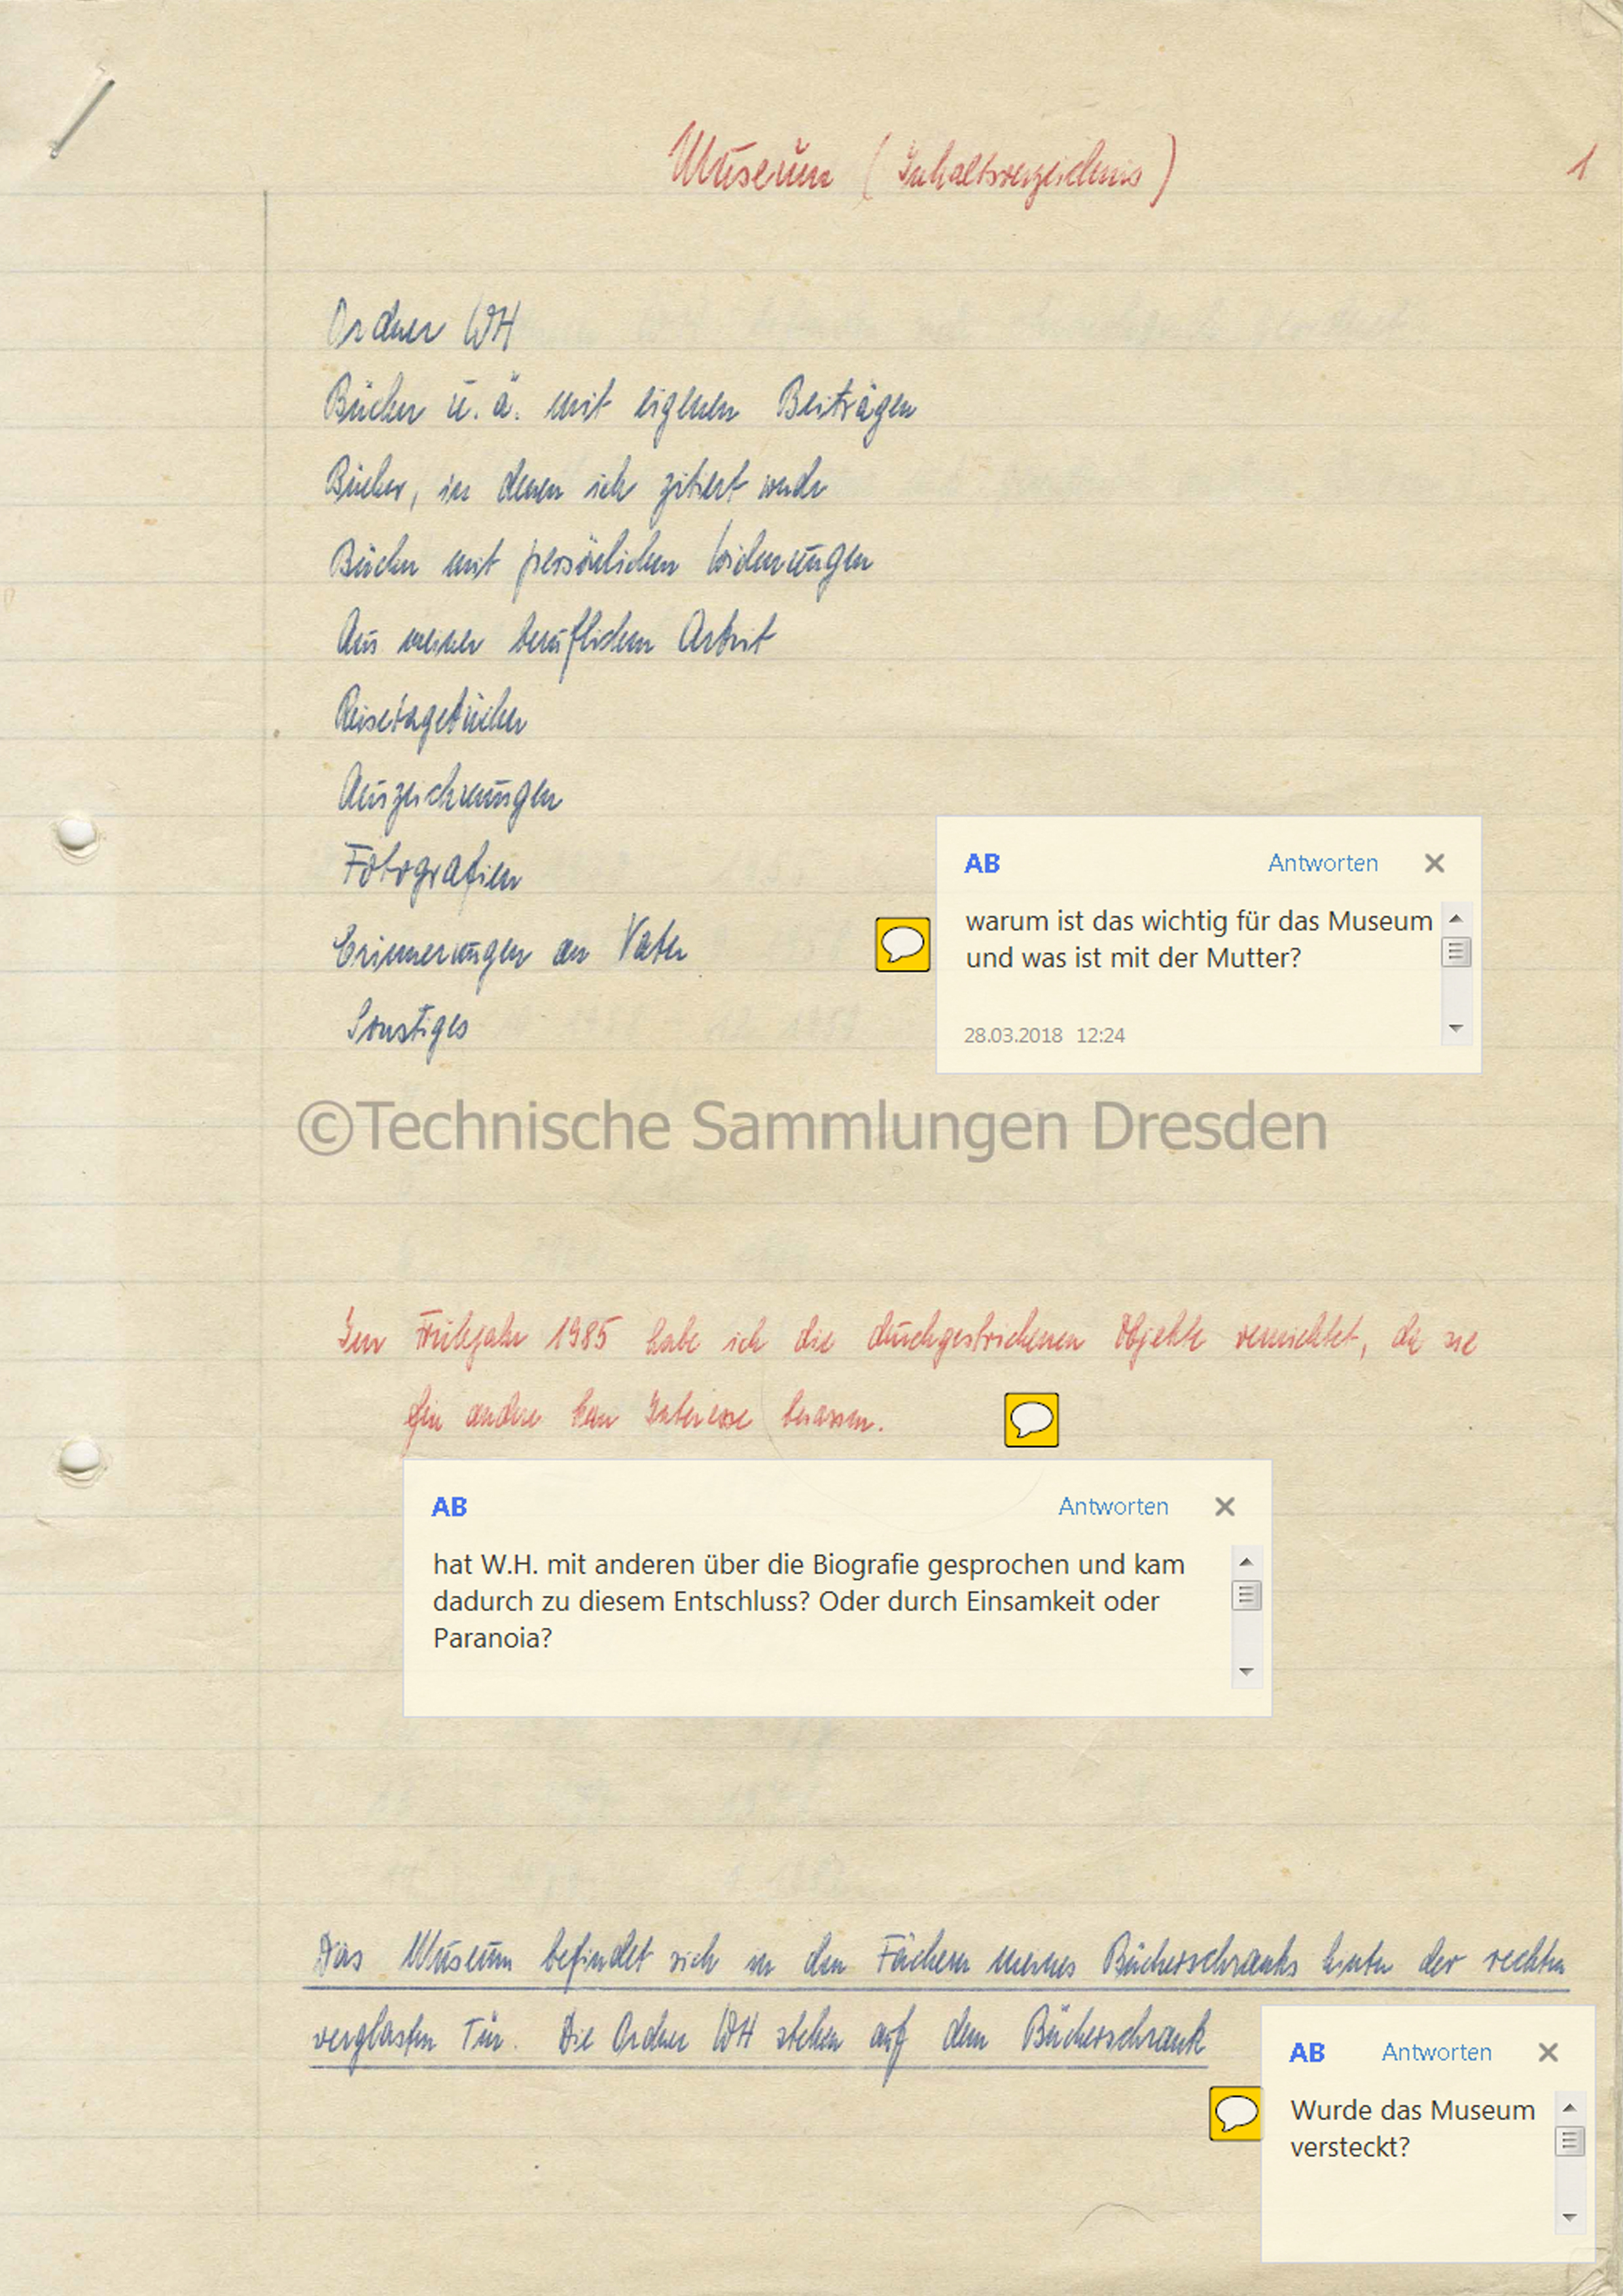 Museum (Inhaltsverzeichnis)
1
Ordner WH
Bücher u. ä. mit eigenen Beiträgen
Bücher, in denen ich zitiert werde
Bücher mit persönlichen Widmungen
Aus meiner beruflichen Arbeit
Reisetagebücher
Auszeichnungen
Fotografien
Erinnerungen an Vater
Sonstiges
AB Antworten
warum ist das wichtig für das Museum
und was ist mit der Mutter?
28.03.2018 12:24
©Technische Sammlungen Dresden
Im Frühjahr 1985 habe ich die durchgestrichenen Objekte vernichtet, da sie
für andere kein Interesse besassen.
AB Antworten
hat W.H. mit anderen über die Biografie gesprochen und kam
dadurch zu diesem Entschluss? Oder durch Einsamkeit oder
Paranoia?
Das Museum befindet sich in den Fächern meines Bücherschranks hinter der rechten
verglasten Tür. Die Ordner WH stehen auf dem Bücherschrank
AB Antworten
Wurde das Museum
versteckt?